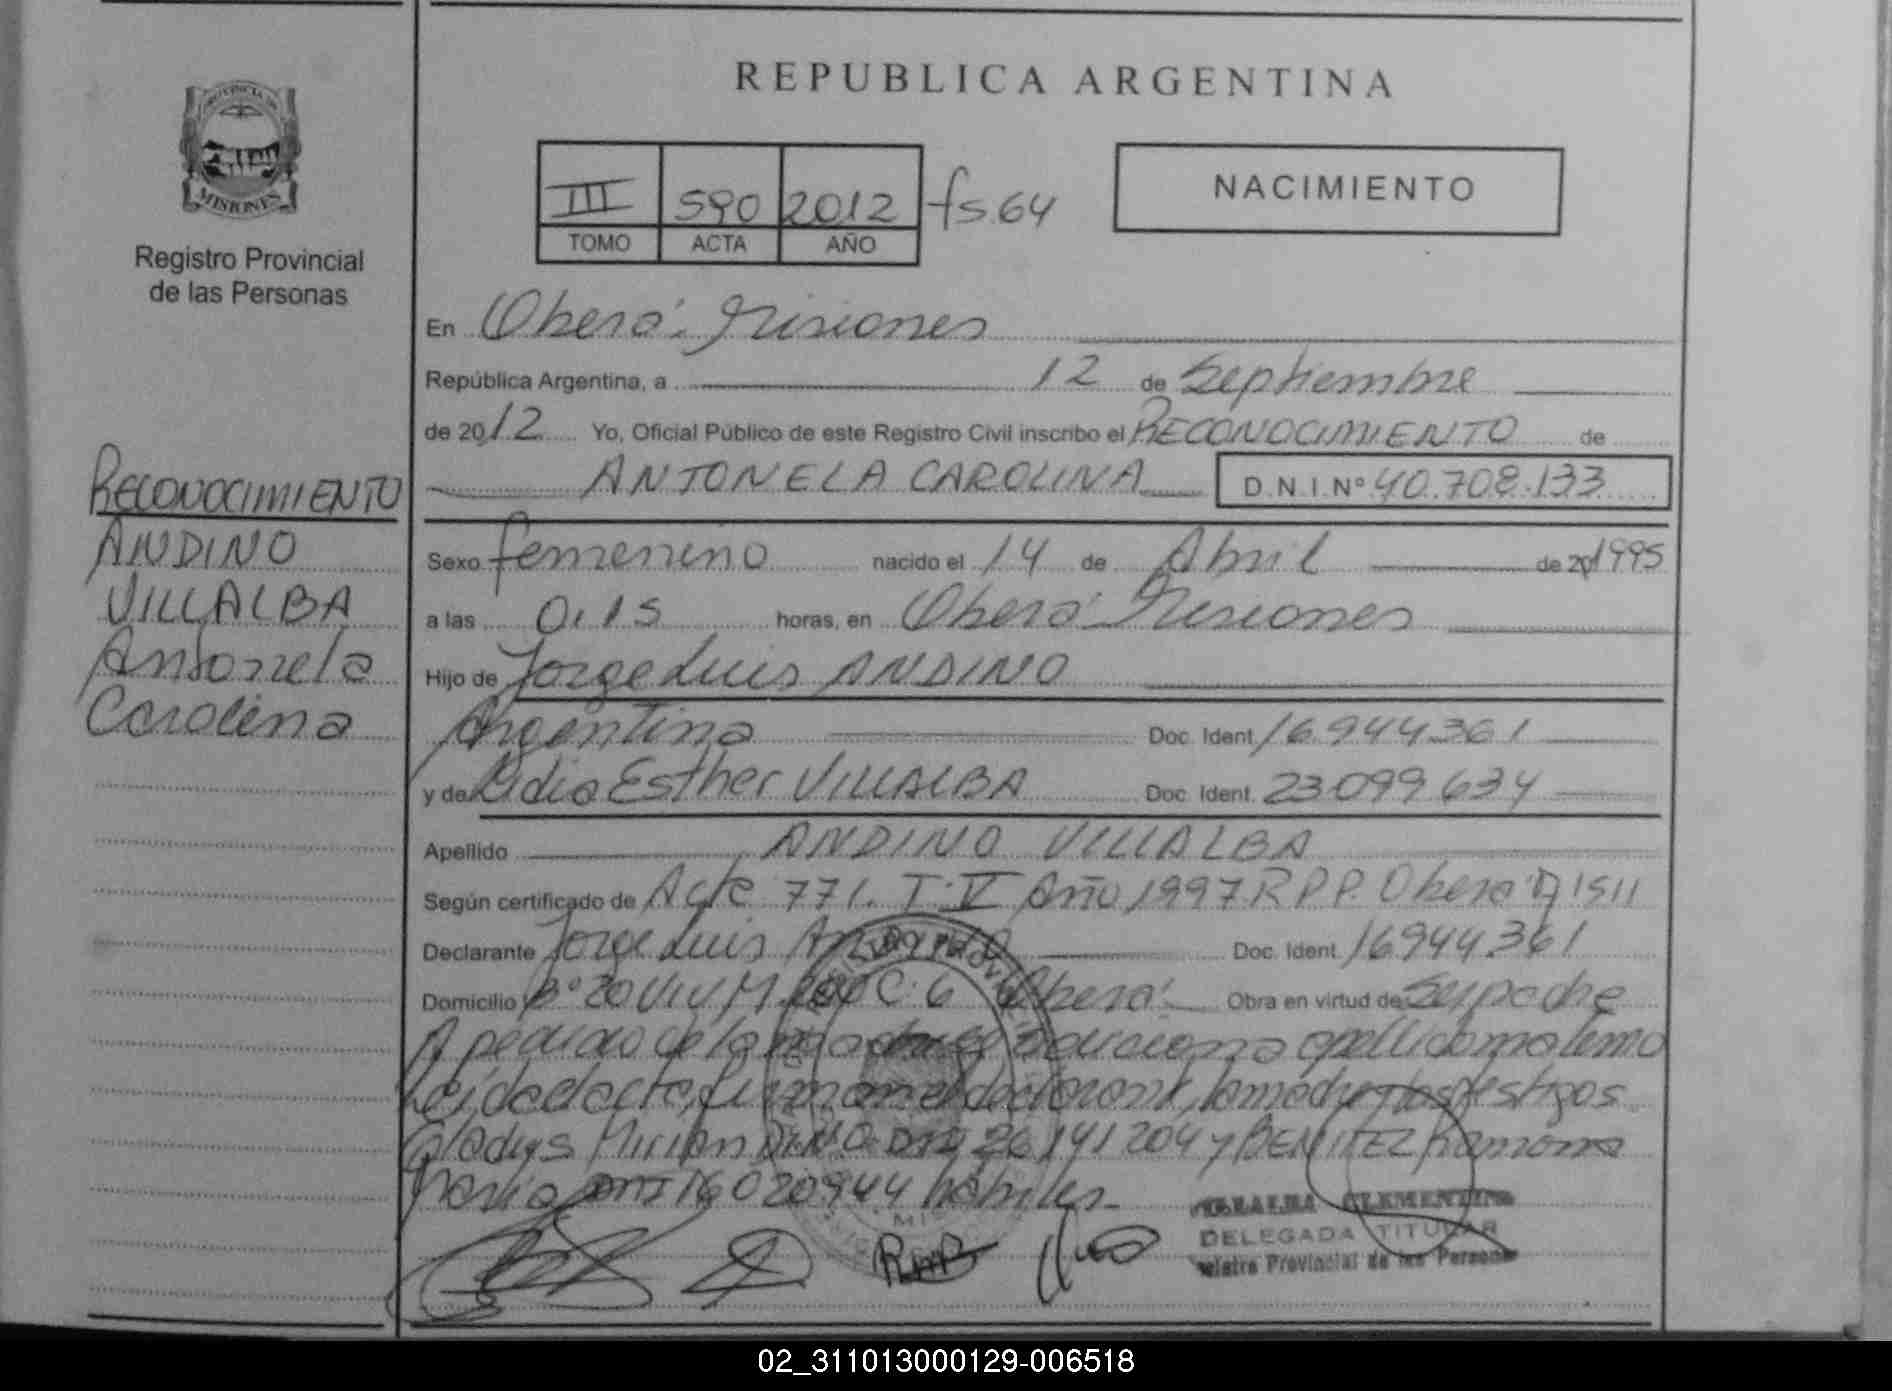 REPUBLICA ARGENTINA
PROVINCIA DE
MISIONES
Registro Provincial
de las Personas
III 590 2012 fs. 64
TOMO ACTA AÑO
NACIMIENTO
En Oberá. Misiones
República Argentina, a 12 de Septiembre
de 2012 Yo, Oficial Público de este Registro Civil inscribo el RECONOCIMIENTO de
ANTONELA CAROLINA D.N.I.Nº 40.708.133
RECONOCIMIENTO
ANDINO
VILLALBA
Antonela
Carolina
Sexo femenino nacido el 14 de Abril de 20 1995
a las 0,15 horas, en Oberá Misiones
Hijo de Jorge Luis ANDINO
Argentina Doc. Ident. 16.944.361
y de Lidia Esther VILLALBA Doc. Ident. 23.099.634
Apellido ANDINO VILLALBA
Según certificado de Acta 771. T. V Año 1997. R P P. Oberá 1511
Declarante Jorge Luis Andino Doc. Ident. 16.944.361
Domicilio Bº 20 Viv M. C. 6 Oberá. Obra en virtud de Ser padre
A pedido de la madre se adiciona apellido materno
Leida el acta, firman el declarante, la madre y los testigos
Gladys Mirian DNI 26 141 204 y BENITEZ Ramona
Maria DNI 16 020944 habiles
RmB
VILLALBA CLEMENTINA
DELEGADA TITULAR
Registro Provincial de las Personas
02_311013000129-006518